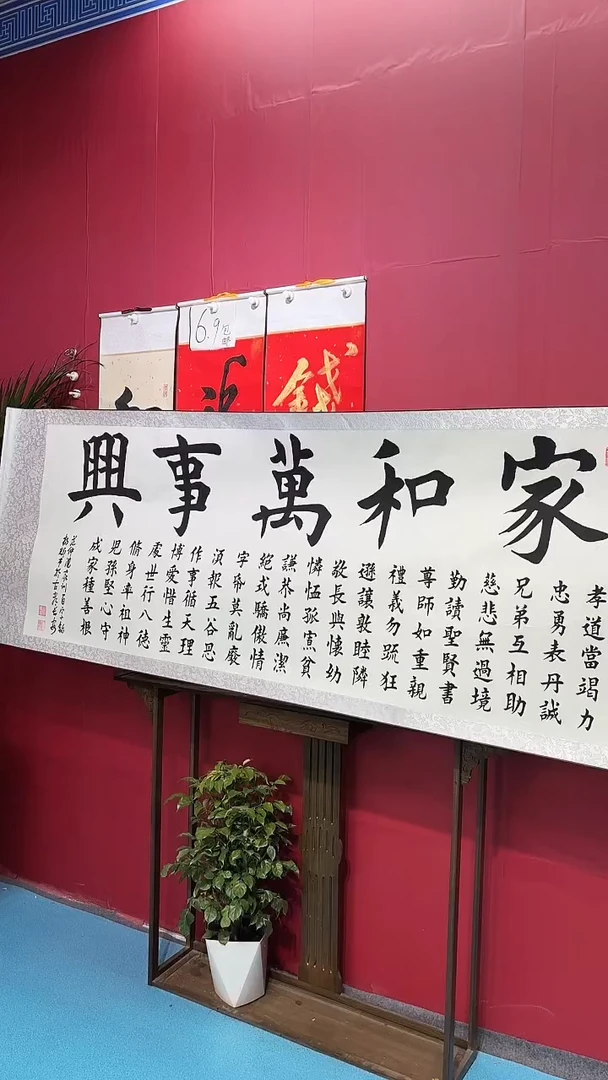 16.9
包邮
家和萬事興
孝道當竭力
忠勇表丹誠
兄弟互相助
慈悲無過境
勤讀聖賢書
尊師如重親
禮義勿疏狂
遜讓敦睦隣
敬長與懷幼
憐恤孤寡貧
謙恭尚廉潔
絕戒驕傲情
字紙莫亂廢
須報五谷恩
作事循天理
博愛惜生靈
處世行八德
脩身率祖神
児孫堅心守
成家種善根
范仲淹家訓百字銘